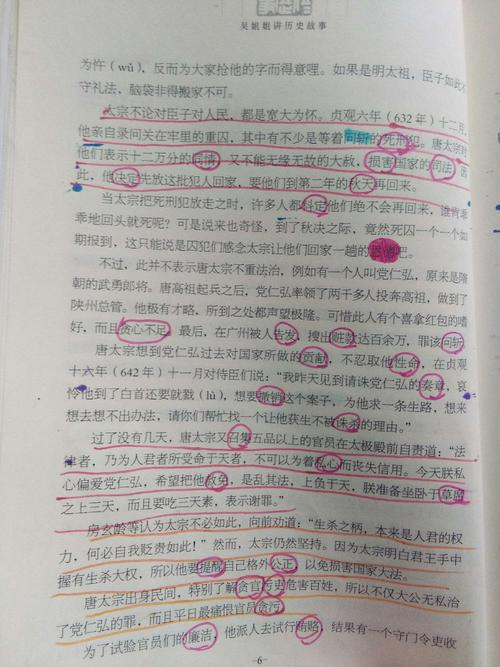 吴姐姐讲历史故事
为忤（wǔ），反而为大家抢他的字而得意哩。如果是明太祖，臣子如此不
守礼法、脑袋非得搬家不可。
太宗不论对臣子对人民，都是宽大为怀。贞观六年（632年）十二月，
他亲自录问关在牢里的重囚，其中有不少是等着问斩的死刑犯。唐太宗对
他们表示十二万分的同情，又不能无缘无故的大赦，损害国家的司法，因
此，他决定先放这批犯人回家，要他们到第二年的秋天再回来。
当太宗把死刑犯放走之时，许多人都料定他们绝不会再回来，谁肯乖
乖地回头就死呢？可是说来也奇怪，到了秋决之际，竟然死囚一个一个如
期报到，这只能说是囚犯们感念太宗让他们回家一趟的恩德吧。
不过，此并不表示唐太宗不重法治，例如有一个人叫党仁弘，原来是隋
朝的武勇郎将。唐高祖起兵之后，党仁弘率领了两千多人投奔高祖，做到了
陕州总管。他极有才略，所到之处都声望极隆。可惜此人有个喜拿红包的嗜
好，而且贪心不足，最后，在广州被人告发，搜出赃款达百余万，罪该问斩。
唐太宗想到党仁弘过去对国家所做的贡献，不忍取他性命，在贞观
十六年（642年）十一月对侍臣们说：“我昨天见到请诛党仁弘的奏章，哀
怜他到了白首还要就戮（lù），想要撤销这个案子，为他求一条生路，想来
想去想不出办法，请你们帮忙找一个让他获生不被诛杀的理由。”
过了没有几天，唐太宗又召集五品以上的官员在太极殿前自责道：“法
律者，乃为人君者所受命于天者，不可以为着私心而丧失信用。今天朕私
心偏爱党仁弘，希望把他赦免，是乱其法，上负于天，朕准备坐卧于草席
之上三天，而且要吃三天素，表示谢罪。”
房玄龄等认为太宗不必如此，向前劝道：“生杀之柄，本来是人君的权
力，何必自我贬责如此！”然而，太宗仍然坚持。因为太宗明白君王手中
握有生杀大权，所以他要提醒自己格外公正，以免损害国家大法。
唐太宗出身民间，特别了解贪官污吏危害百姓，所以不仅大公无私治
了党仁弘的罪，而且平日最痛恨官员贪污。
为了试验官员们的廉洁，他派人去试行贿赂，结果有一个守门令吏收
·6·